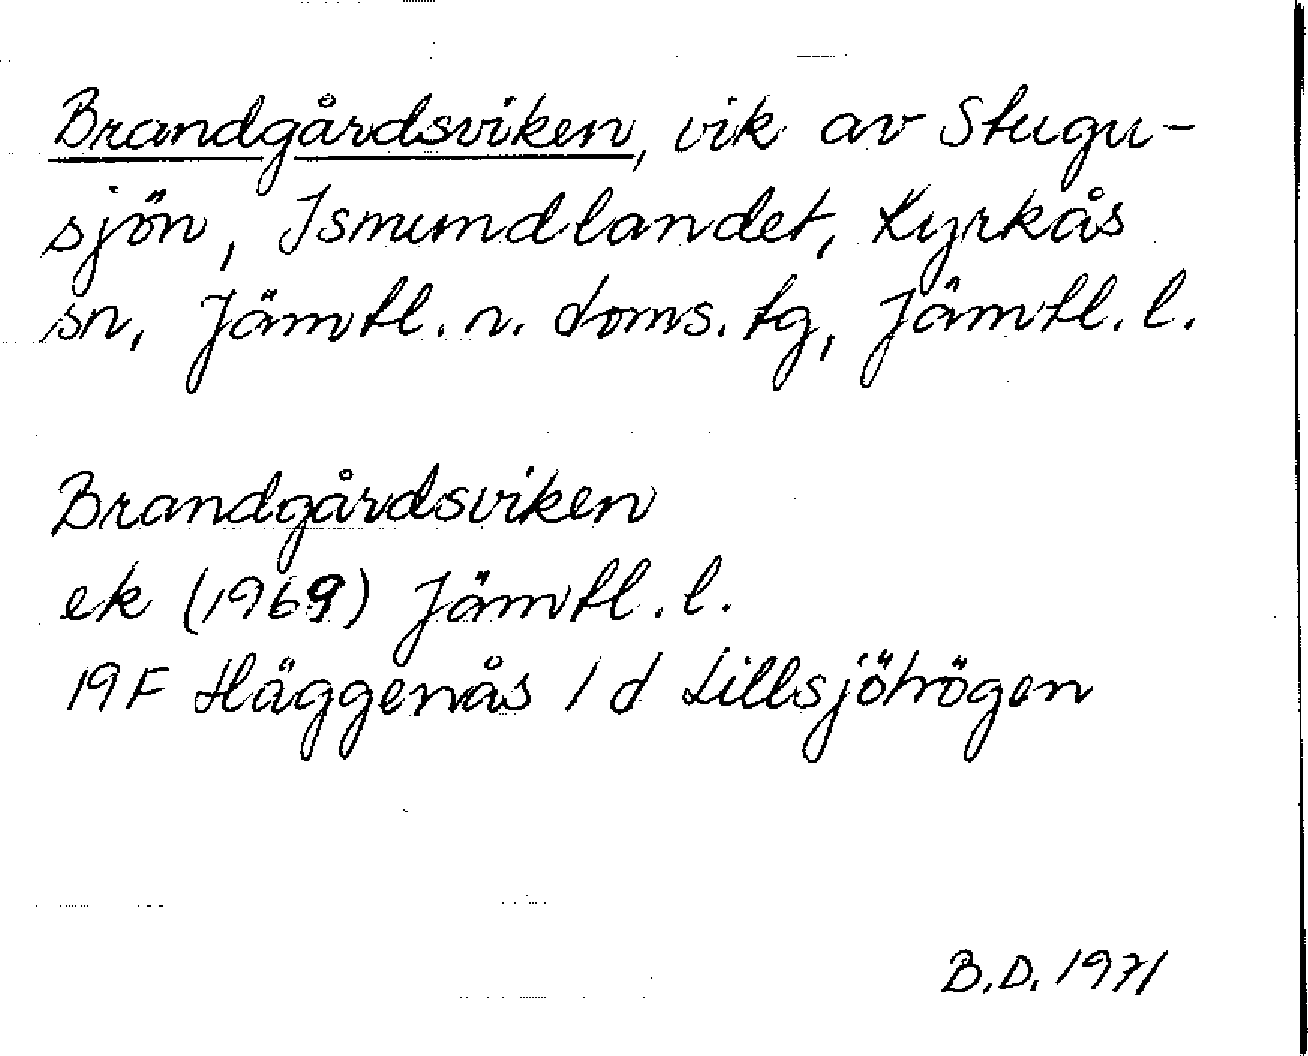 Brandgårdsviken, vik av Stugu-
sjön, Ismundlandet, Kyrkås
sn, Jämtl. n. doms. tg, Jämtl. l.
Brandgårdsviken
ek (1969) Jämtl. l.
19F Häggenås 1 d Lillsjöhögen
B.D. 1971